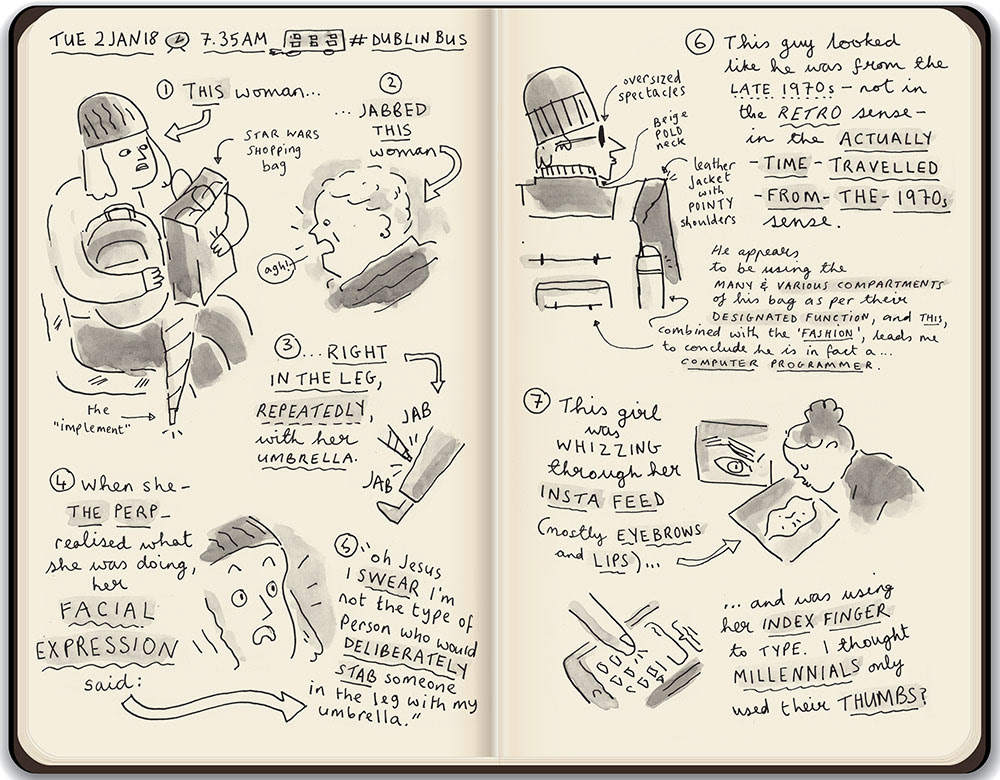 TUE 2JAN18 7.35AM # DUBLIN BUS
① THIS woman...
STAR WARS
SHOPPING
bag
②
... JABBED
THIS
woman
agh!
the
"implement"
③ ... RIGHT
IN THE LEG,
REPEATEDLY,
with her
UMBRELLA.
JAB
JAB
④ When she -
THE PERP -
realised what
she was doing,
her
FACIAL
EXPRESSION
said:
⑤ "oh Jesus
I SWEAR I'm
not the type of
person who would
DELIBERATELY
STAB someone
in the leg with my
umbrella."
⑥ This guy looked
like he was from the
LATE 1970s - not in
the RETRO sense -
in the ACTUALLY
- TIME - TRAVELLED
- FROM - THE - 1970s
sense.
oversized
spectacles
Beige
POLO
neck
leather
Jacket
with
POINTY
shoulders
He appears
to be using the
MANY & VARIOUS COMPARTMENTS
of his bag as per their
DESIGNATED FUNCTION, and THIS,
combined with the 'FASHION', leads me
to conclude he is in fact a...
COMPUTER PROGRAMMER.
⑦ This girl
was
WHIZZING
through her
INSTA FEED
(mostly EYEBROWS
and LIPS)...
... and was using
her INDEX FINGER
to TYPE. I thought
MILLENNIALS only
used their THUMBS?